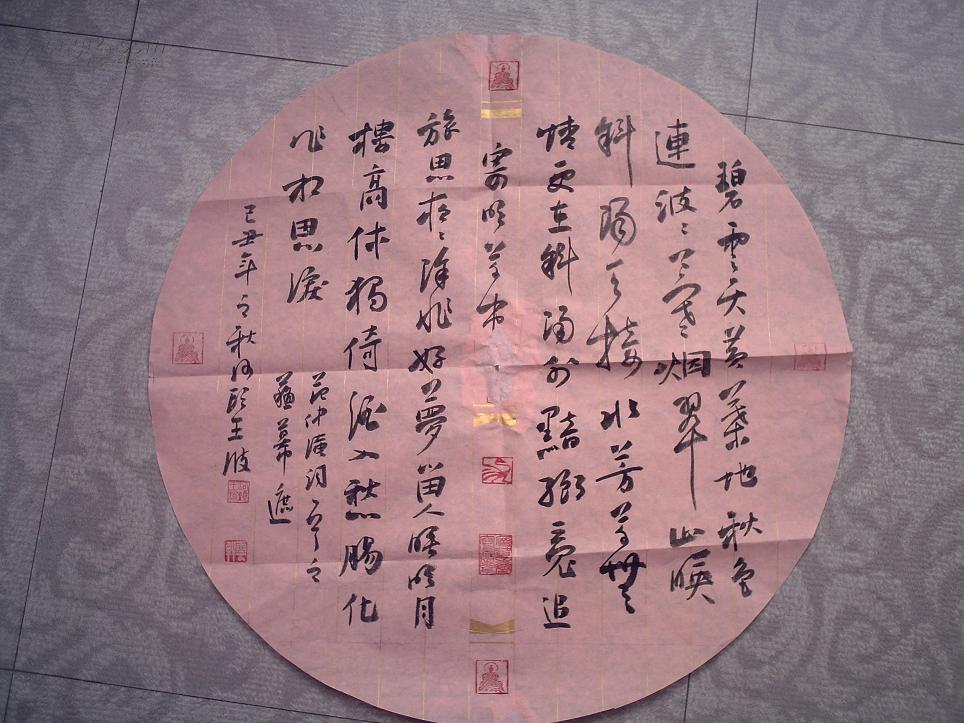 碧雲天黃葉地秋色
連波〻上寒烟翠山映
斜陽天接水芳草無
情更在斜陽外黯鄉魂追
旅思夜〻除非好夢留人睡明月
樓高休獨倚酒入愁腸化
作相思淚
范仲淹詞
蘇幕遮
己丑年之秋王波